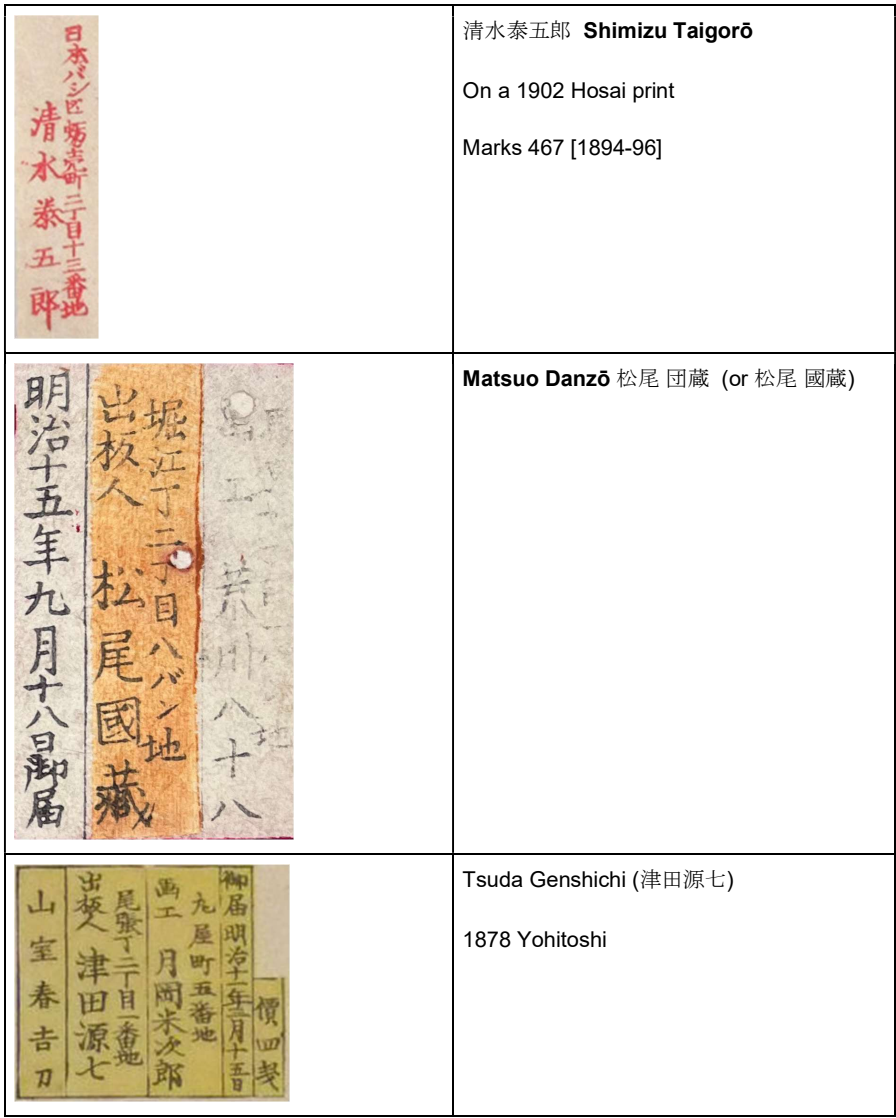 日本バシ区蛎壳町二丁目十三番地
清水泰五郎
清水泰五郎 Shimizu Taigorō
On a 1902 Hosai print
Marks 467 [1894-96]
画工 荒川八十八
堀江丁二丁目八バン地
出板人 松尾國藏
明治十五年九月十八日御届
Matsuo Danzō 松尾 団蔵 (or 松尾 國蔵)
價四戔
御届明治十一年二月十五日
九屋町五番地
画工 月岡米次郎
尾張丁二丁目一番地
出板人 津田源七
山室春吉刀
Tsuda Genshichi (津田源七)
1878 Yohitoshi